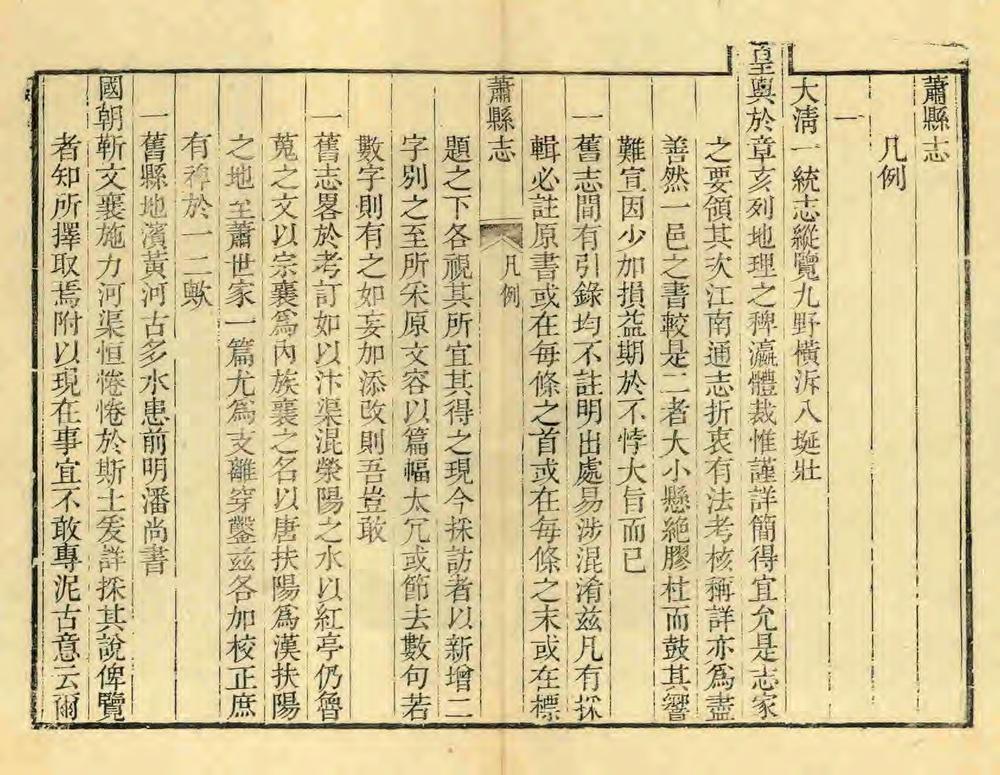 蕭縣志
凡例
一
大清一統志縱覽九野橫泝八埏壯
皇輿於章亥列地理之稗瀛體裁惟謹詳簡得宜允是志家
之要領其次江南通志折衷有法考核稱詳亦爲盡
善然一邑之書較是二者大小懸絕膠柱而鼓其響
難宣因少加損益期於不悖大旨而已
一舊志間有引錄均不註明出處易涉混淆兹凡有採
輯必註原書或在每條之首或在每條之末或在標
蕭縣志
凡例
題之下各視其所宜其得之現今採訪者以新增二
字別之至所采原文容以篇幅太冗或節去數句若
數字則有之如妄加添改則吾豈敢
一舊志畧於考訂如以汴渠混滎陽之水以紅亭仍魯
蒐之文以宗襄爲內族襄之名以唐扶陽爲漢扶陽
之地至蕭世家一篇尤爲支離穿鑿兹各加校正庶
有稗於一二歟
一舊縣地濱黃河古多水患前明潘尚書
國朝靳文襄施力河渠恒惓惓於斯土爰詳採其說俾覽
者知所擇取焉附以現在事宜不敢專泥古意云爾